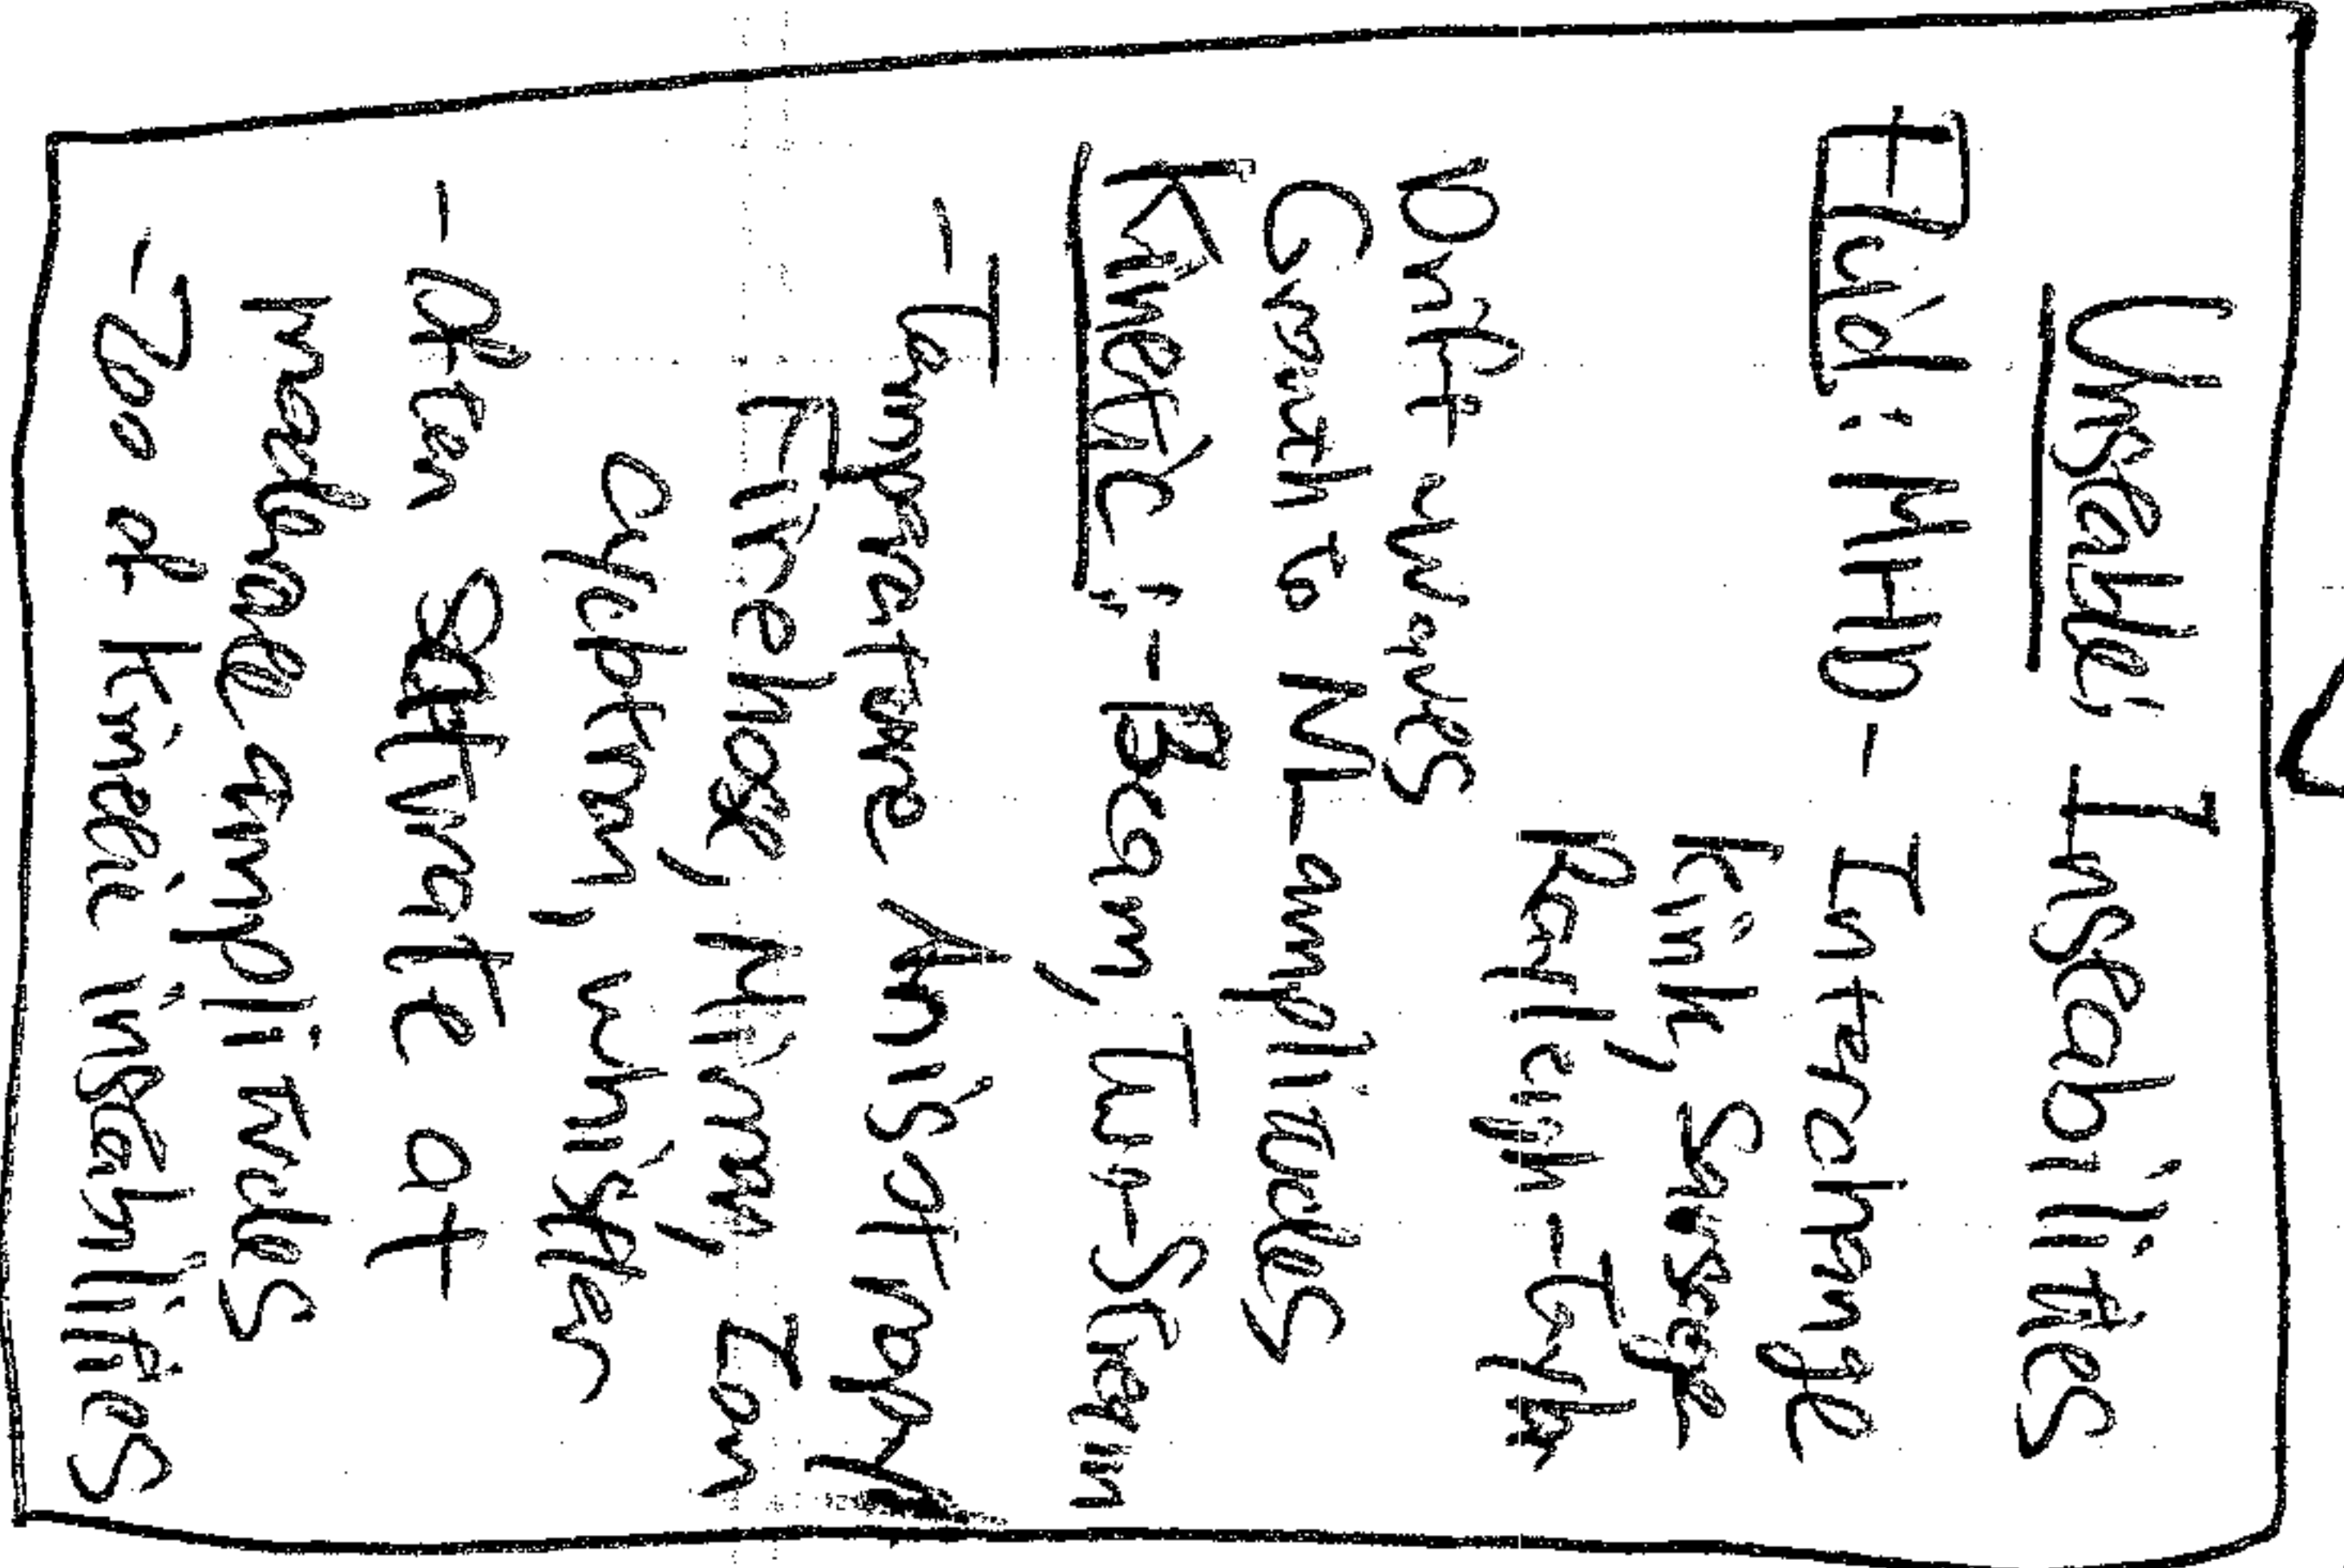 Unstable: Instabilities
Fluid: MHD - Interchange
Kink, Sausage
Rayleigh-Tayl
Drift waves
Growth to NL amplitudes
Kinetic: - Beam, Two-Stream
- Temperature Anisotropy
Firehose, Mirror, Ion
cyclotron, whistler
- Often saturate at
moderate amplitudes
- Zoo of kinetic instabilities